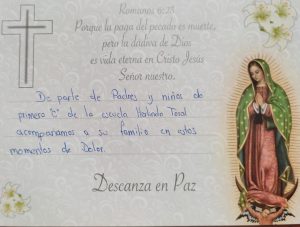 Romanos 6:23
Porque la paga del pecado es muerte,
pero la dádiva de Dios
es vida eterna en Cristo Jesús
Señor nuestro.
De parte de Padres y niños de
primero "C" de la escuela
acompañamos a su familia en estos
momentos de Dolor.
Descanza en Paz